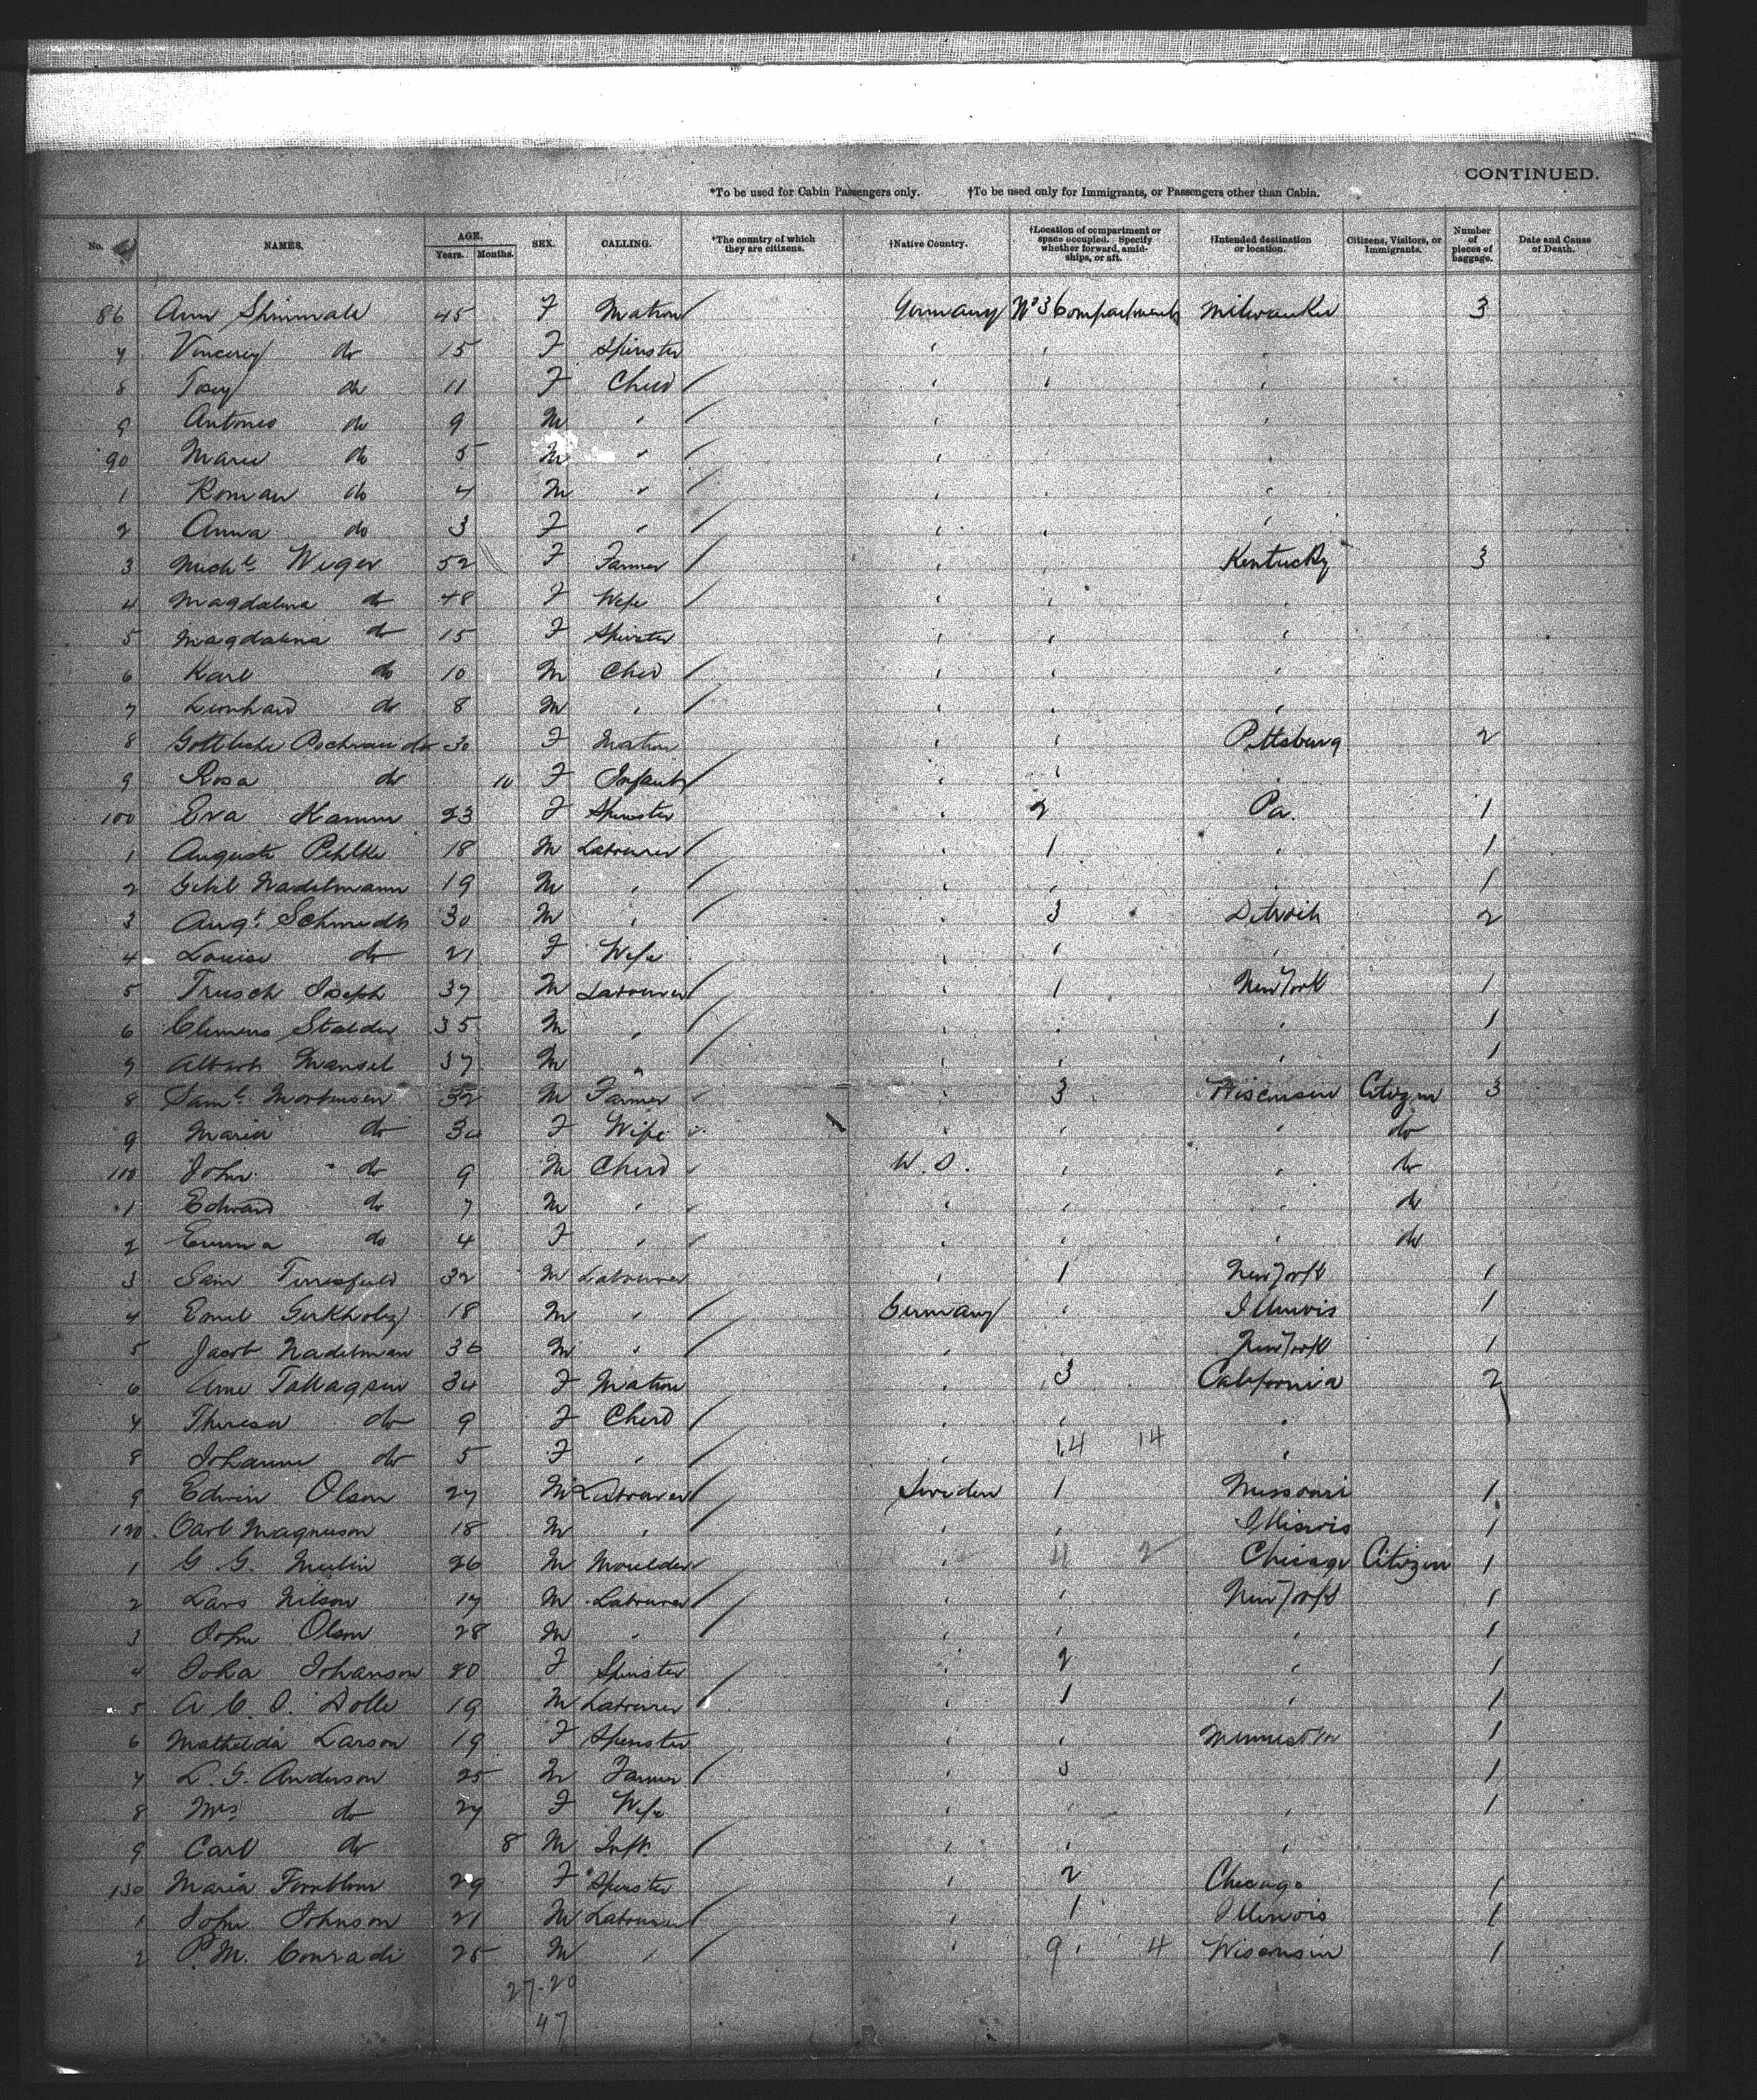 CONTINUED.
*To be used for Cabin Passengers only. †To be used only for Immigrants, or Passengers other than Cabin.
No. NAMES. AGE. Years. Months. SEX. CALLING. *The country of which they are citizens. †Native Country. †Location of compartment or space occupied. Specify whether forward, amidships, or aft. †Intended destination or location. Citizens, Visitors, or Immigrants. Number of pieces of baggage. Date and Cause of Death.
86 Ann 45 F Matron Germany No 3 Compartment Milwaukee 3
7 do 15 F Spinster
8 do 11 F Child
9 Antonio do 9 M "
90 Marie do 5 M "
1 Roman do 4 M "
2 Anna do 3 F "
3 Michl Weger 52 F Farmer Kentucky 3
4 Magdalena do 48 F Wife
5 Magdalena do 15 F Spinster
6 Karl do 10 M Child
7 Leonhard do 8 M "
8 do 30 F Matron Pittsburg 2
9 Rosa do 10 F Infant
100 Eva Kamm 23 F Spinster 2 Pa. 1
1 Auguste Pehlke 18 M Labourer 1 " 1
2 Nadelmann 19 M " 1
3 Augt Schmidt 30 M " 3 Detroit 2
4 Louise do 21 F Wife
5 Trusch Joseph 37 M Labourer 1 New York 1
6 Clemens Stalder 35 M " 1
7 Albert Mansel 37 M " 1
8 Saml Mortensen 32 M Farmer 3 Wisconsin Citizen 3
9 Maria do 30 F Wife do
110 John do 9 M Child do
1 Edward do 7 M " do
2 Emma do 4 F " do
3 Sam 32 M Labourer 1 New York 1
4 Emil 18 M " Germany Illinois 1
5 Jacob Nadelman 36 M " New York 1
6 34 F Matron 3 California 2
7 Theresa do 9 F Child
8 Johanne do 5 F " 14 14
9 Edwin Olson 27 M Labourer Sweden 1 Missouri 1
120 Carl Magnuson 18 M " Illinois 1
1 G. G. 26 M Moulder 2 Chicago Citizen 1
2 Lars Nilson 17 M Labourer New York 1
3 John Olson 28 M " 1
4 Johanson 20 F Spinster 2 " 1
5 A C O. Dolle 19 M Labourer 1 " 1
6 Mathilda Larson 19 F Spinster 1
7 L. G. Anderson 25 M Farmer 3 1
8 Mrs do 27 F Wife 1
9 Carl do 8 M Inft.
130 Maria 29 F Spinster 2 Chicago 1
1 John Johnson 21 M Labourer 1 Illinois 1
2 P. M. Conradi 25 M " 9 4 Wisconsin 1
27-20
47